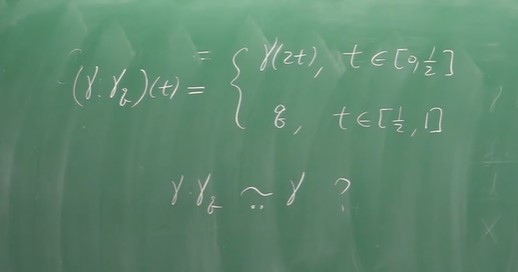 =
(γ·γ_q)(t) = { γ(2t), t ∈ [0,½]
q, t ∈ [½,1]
γ·γ_q ~ γ ?